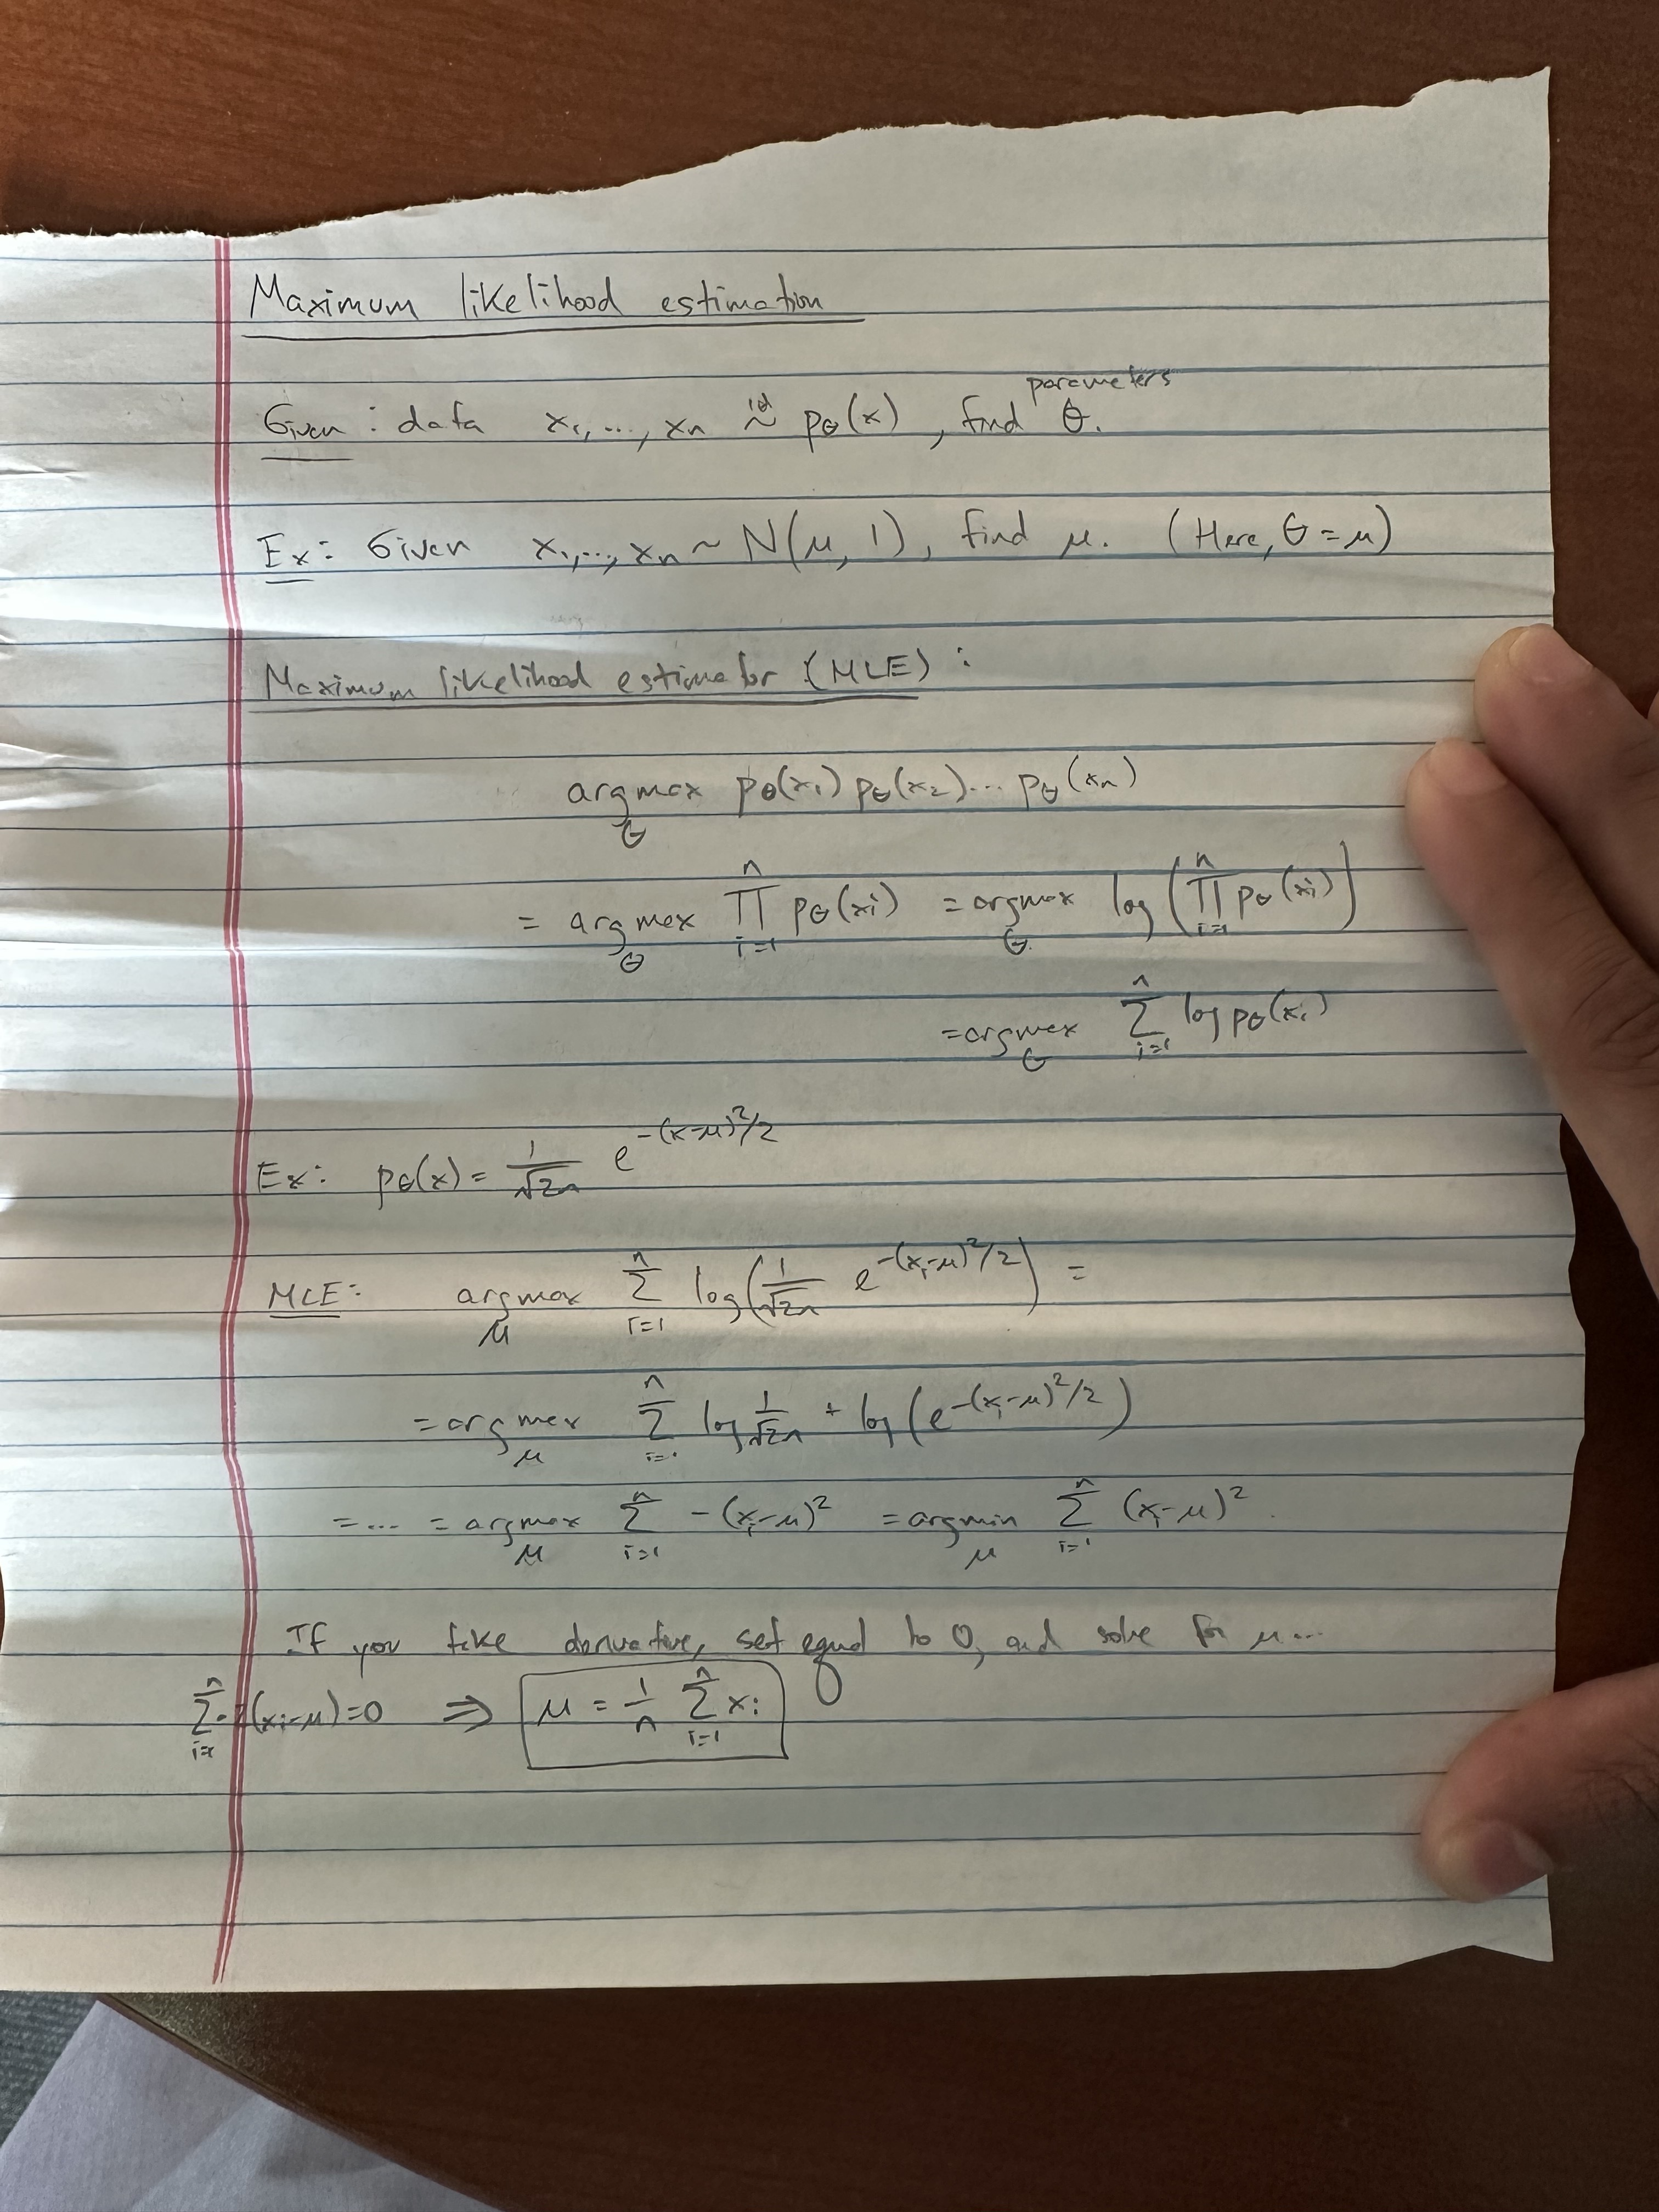 Maximum likelihood estimation
parameters
Given: data x₁, ..., xₙ iid ~ p_θ(x), find θ.
Ex: Given x₁, ..., xₙ ~ N(μ, 1), find μ. (Here, θ = μ)
Maximum likelihood estimator (MLE):
argmax_θ p_θ(x₁) p_θ(x₂) ... p_θ(xₙ)
= argmax_θ ∏_{i=1}^n p_θ(xᵢ) = argmax_θ log(∏_{i=1}^n p_θ(xᵢ))
= argmax_θ ∑_{i=1}^n log p_θ(xᵢ)
Ex: p_θ(x) = 1/√2π e^{-(x-μ)²/2}
MLE: argmax_μ ∑_{i=1}^n log(1/√2π e^{-(xᵢ-μ)²/2}) =
= argmax_μ ∑_{i=1}^n log 1/√2π + log(e^{-(xᵢ-μ)²/2})
= ... = argmax_μ ∑_{i=1}^n -(xᵢ-μ)² = argmin_μ ∑_{i=1}^n (xᵢ-μ)².
If you take derivative, set equal to 0, and solve for μ...
∑_{i=1}^n -2(xᵢ-μ)=0 ⇒ μ = 1/n ∑_{i=1}^n xᵢ